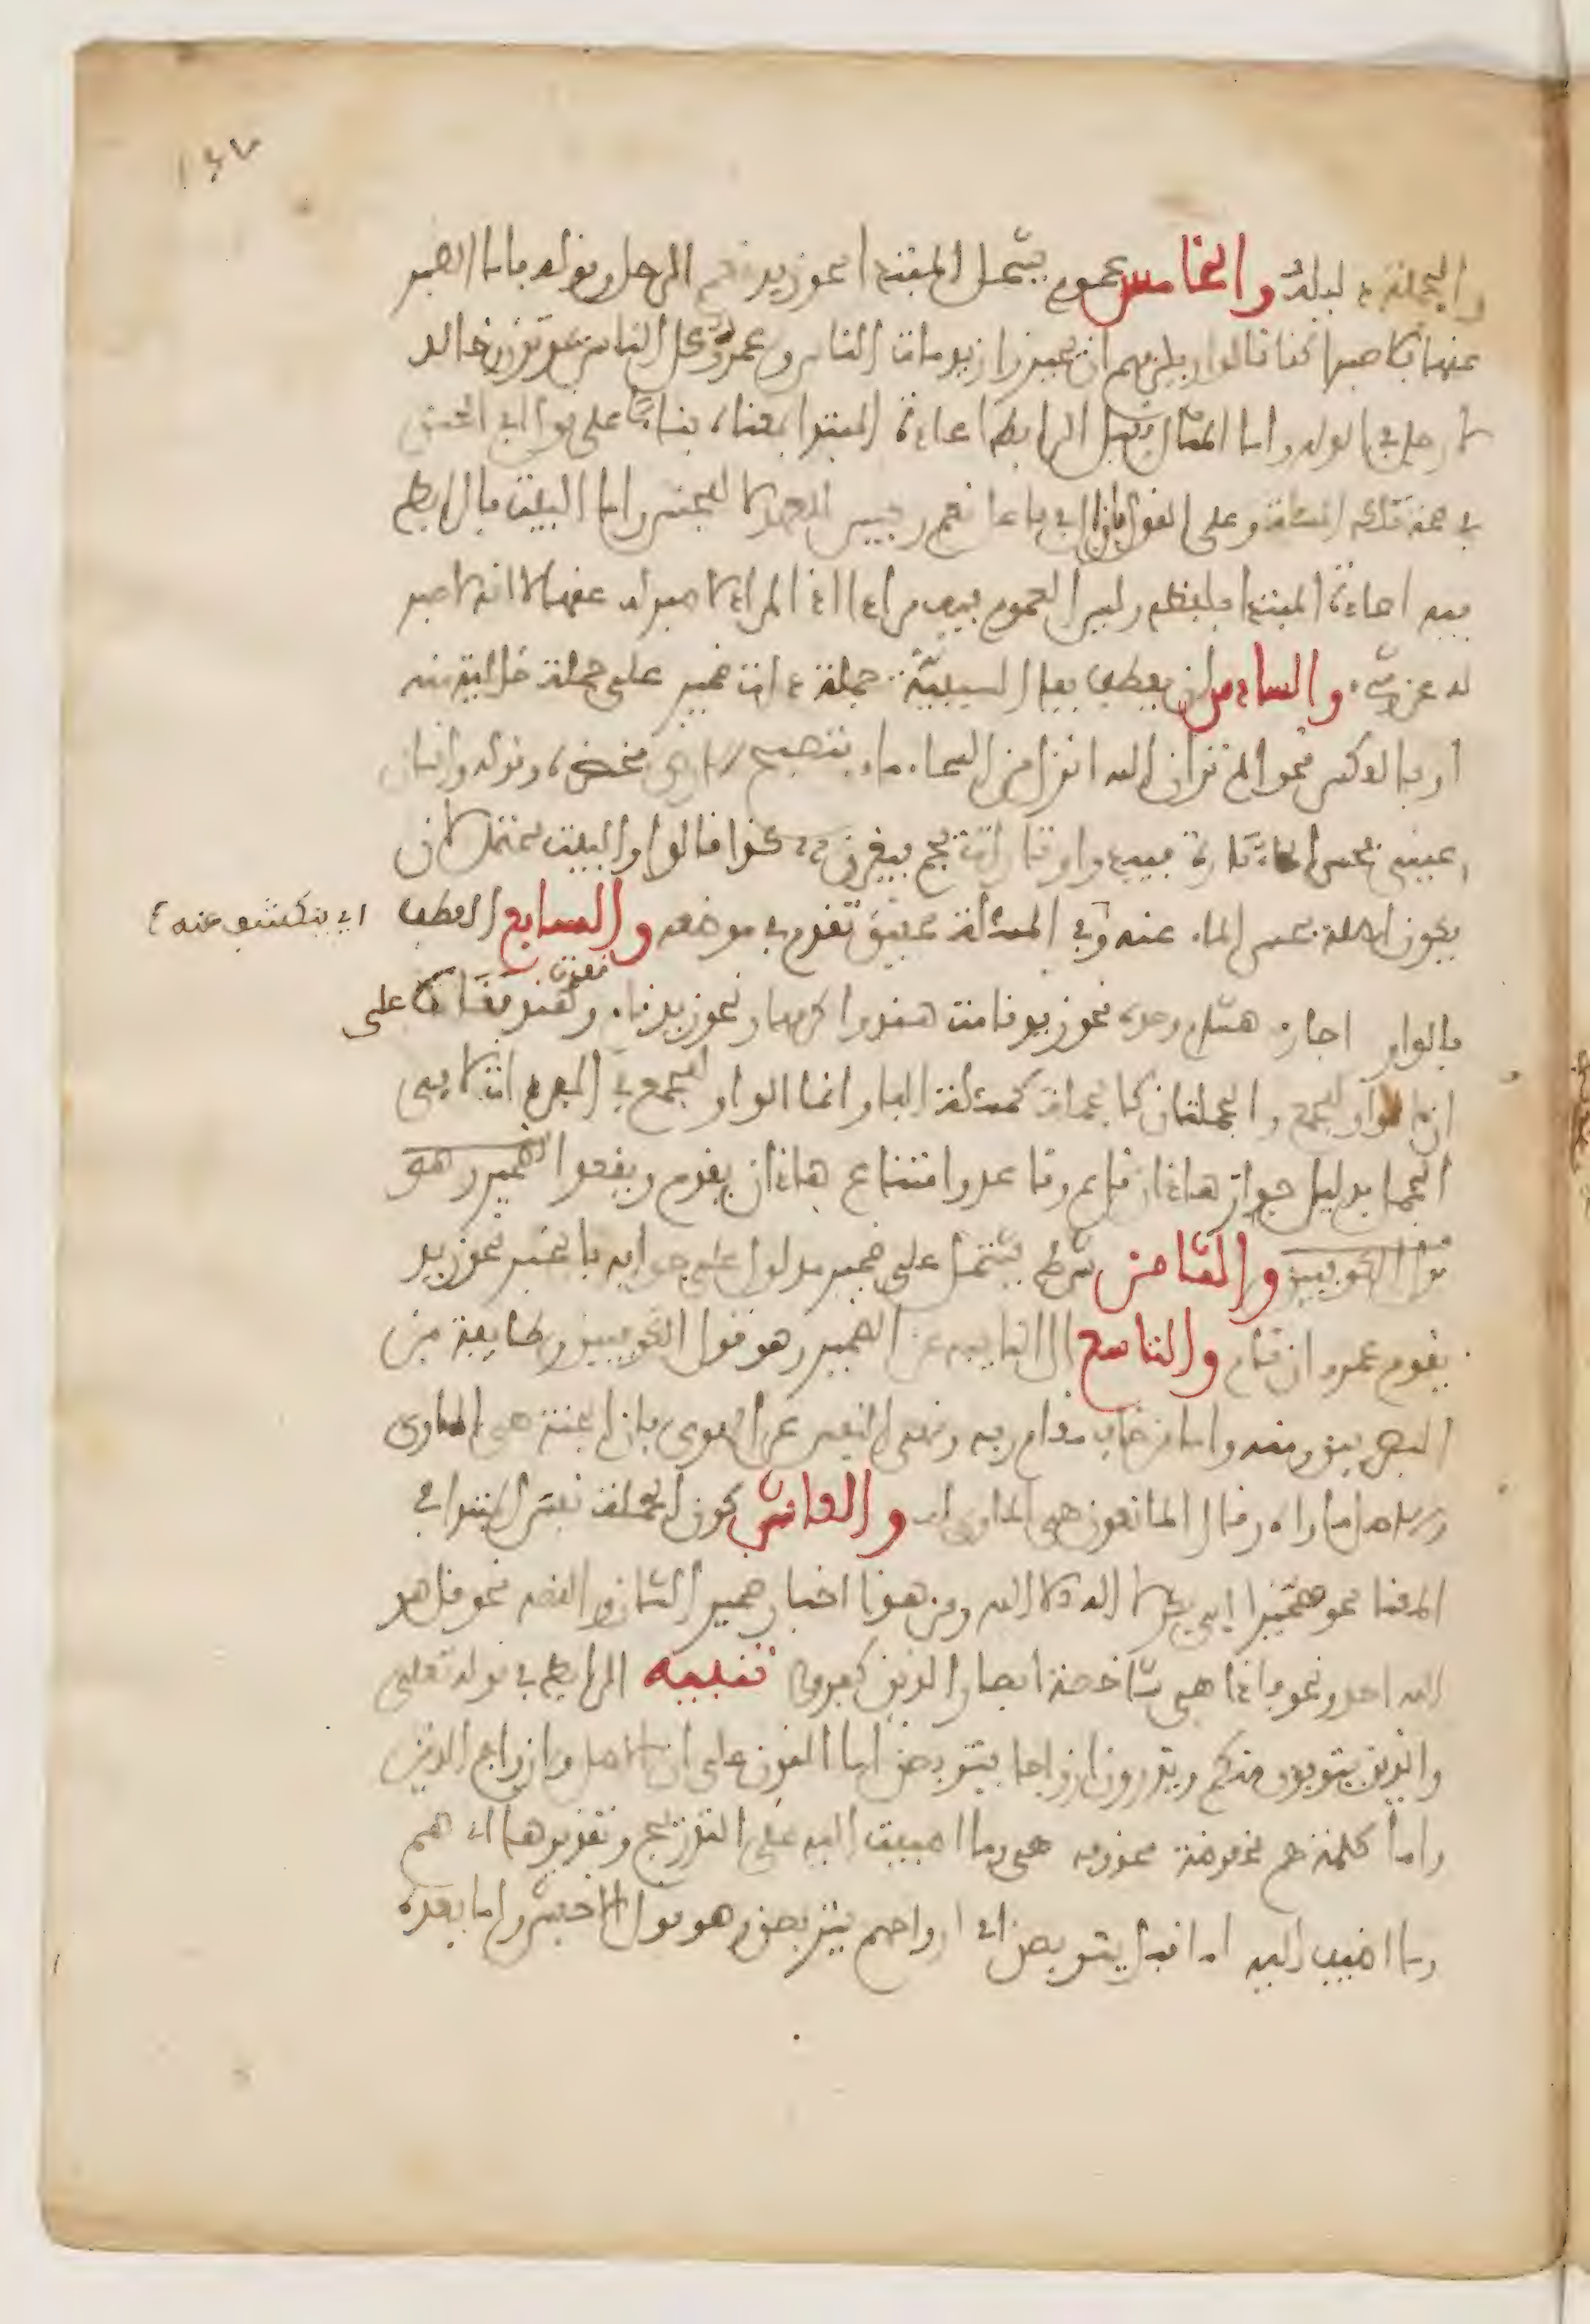 ١٤٧
والجملة دليله والخامس عموم يشمل المبتدا نحو زيد نعم الرجل وقوله فاما الصبر
عنها فلا صبرا كذا قالوا ويلزمهم ان يجيزوا زيد مات الناس وعمرو كل الناس يموتون وخالد
لا رجل في الدار واما المثال فقيل الرابط اعادة المبتدا بمعناه بناء على قول ابي الحسن
في صحة تلك المسئلة وعلى القول بان ال في فاعل نعم وبيس للعهد لا للجنس واما البيت فالرابط
فيه اعادة المبتدا بلفظه وليس العموم فيه مرادا اذ المراد لا صبر له عنها لا انه لا صبر
له عن شيء والسادس ان يعطف بفاء السببية جملة ذات ضمير على جملة خالية منه
او بالعكس نحو الم تر ان الله انزل من السماء ماء فتصبح الارض مخضرة وقوله وانسان
عيني يحسر الماء تارة فيبدو وتارات يجم فيغرق كذا قالوا والبيت محتمل لان
يكون اصله يحسر الماء عنه وفي المسئلة تحقيق تقدم في موضعه والسابع العطف
اي ينكشف عنه
بالواو اجازه هشام وحده نحو زيد قامت هند واكرمها ونحو زيد قام وقعدت هند بناء على
ان الواو للجمع والجملتان كالجملة كمسئلة الفاء وانما الواو للجمع في المفردات لا في
الجمل بدليل جواز هذان قائم وقاعد وامتناع هاذان يقوم ويقعد الضمير وهو
قول الكوفيين والثامن شرط يشتمل على ضمير مدلول على جوابه بالخبر نحو زيد
يقوم عمرو ان قام والتاسع ال النايبه عن الضمير وهو قول الكوفيين وطايفة من
البصريين ومنه واما من خاف مقام ربه ونهى النفس عن الهوى فان الجنة هي الماوى
الاصل ماواه وقال المانعون هي الماوى له والعاشر كون الجملة نفس المبتدا في
المعنا نحو هجيرا ابي بكر لا اله الا الله ومن هذا اخبار ضمير الشان والقصه نحو قل هو
الله احد ونحو فاذا هي شاخصة ابصار الذين كفروا تنبيه الرابط في قوله تعلى
والذين يتوفون منكم ويذرون ازواجا يتربصن اما النون على ان الاصل وازواج الذين
واما كلمة هم مخفوضة محذوفه هي وما اضيفت اليه على التدريج وتقديرها اما هم
وما اضيف اليه اما قبل يتربصن اي ازواجهم يتربصن وهو قول الاخفش واما بعده